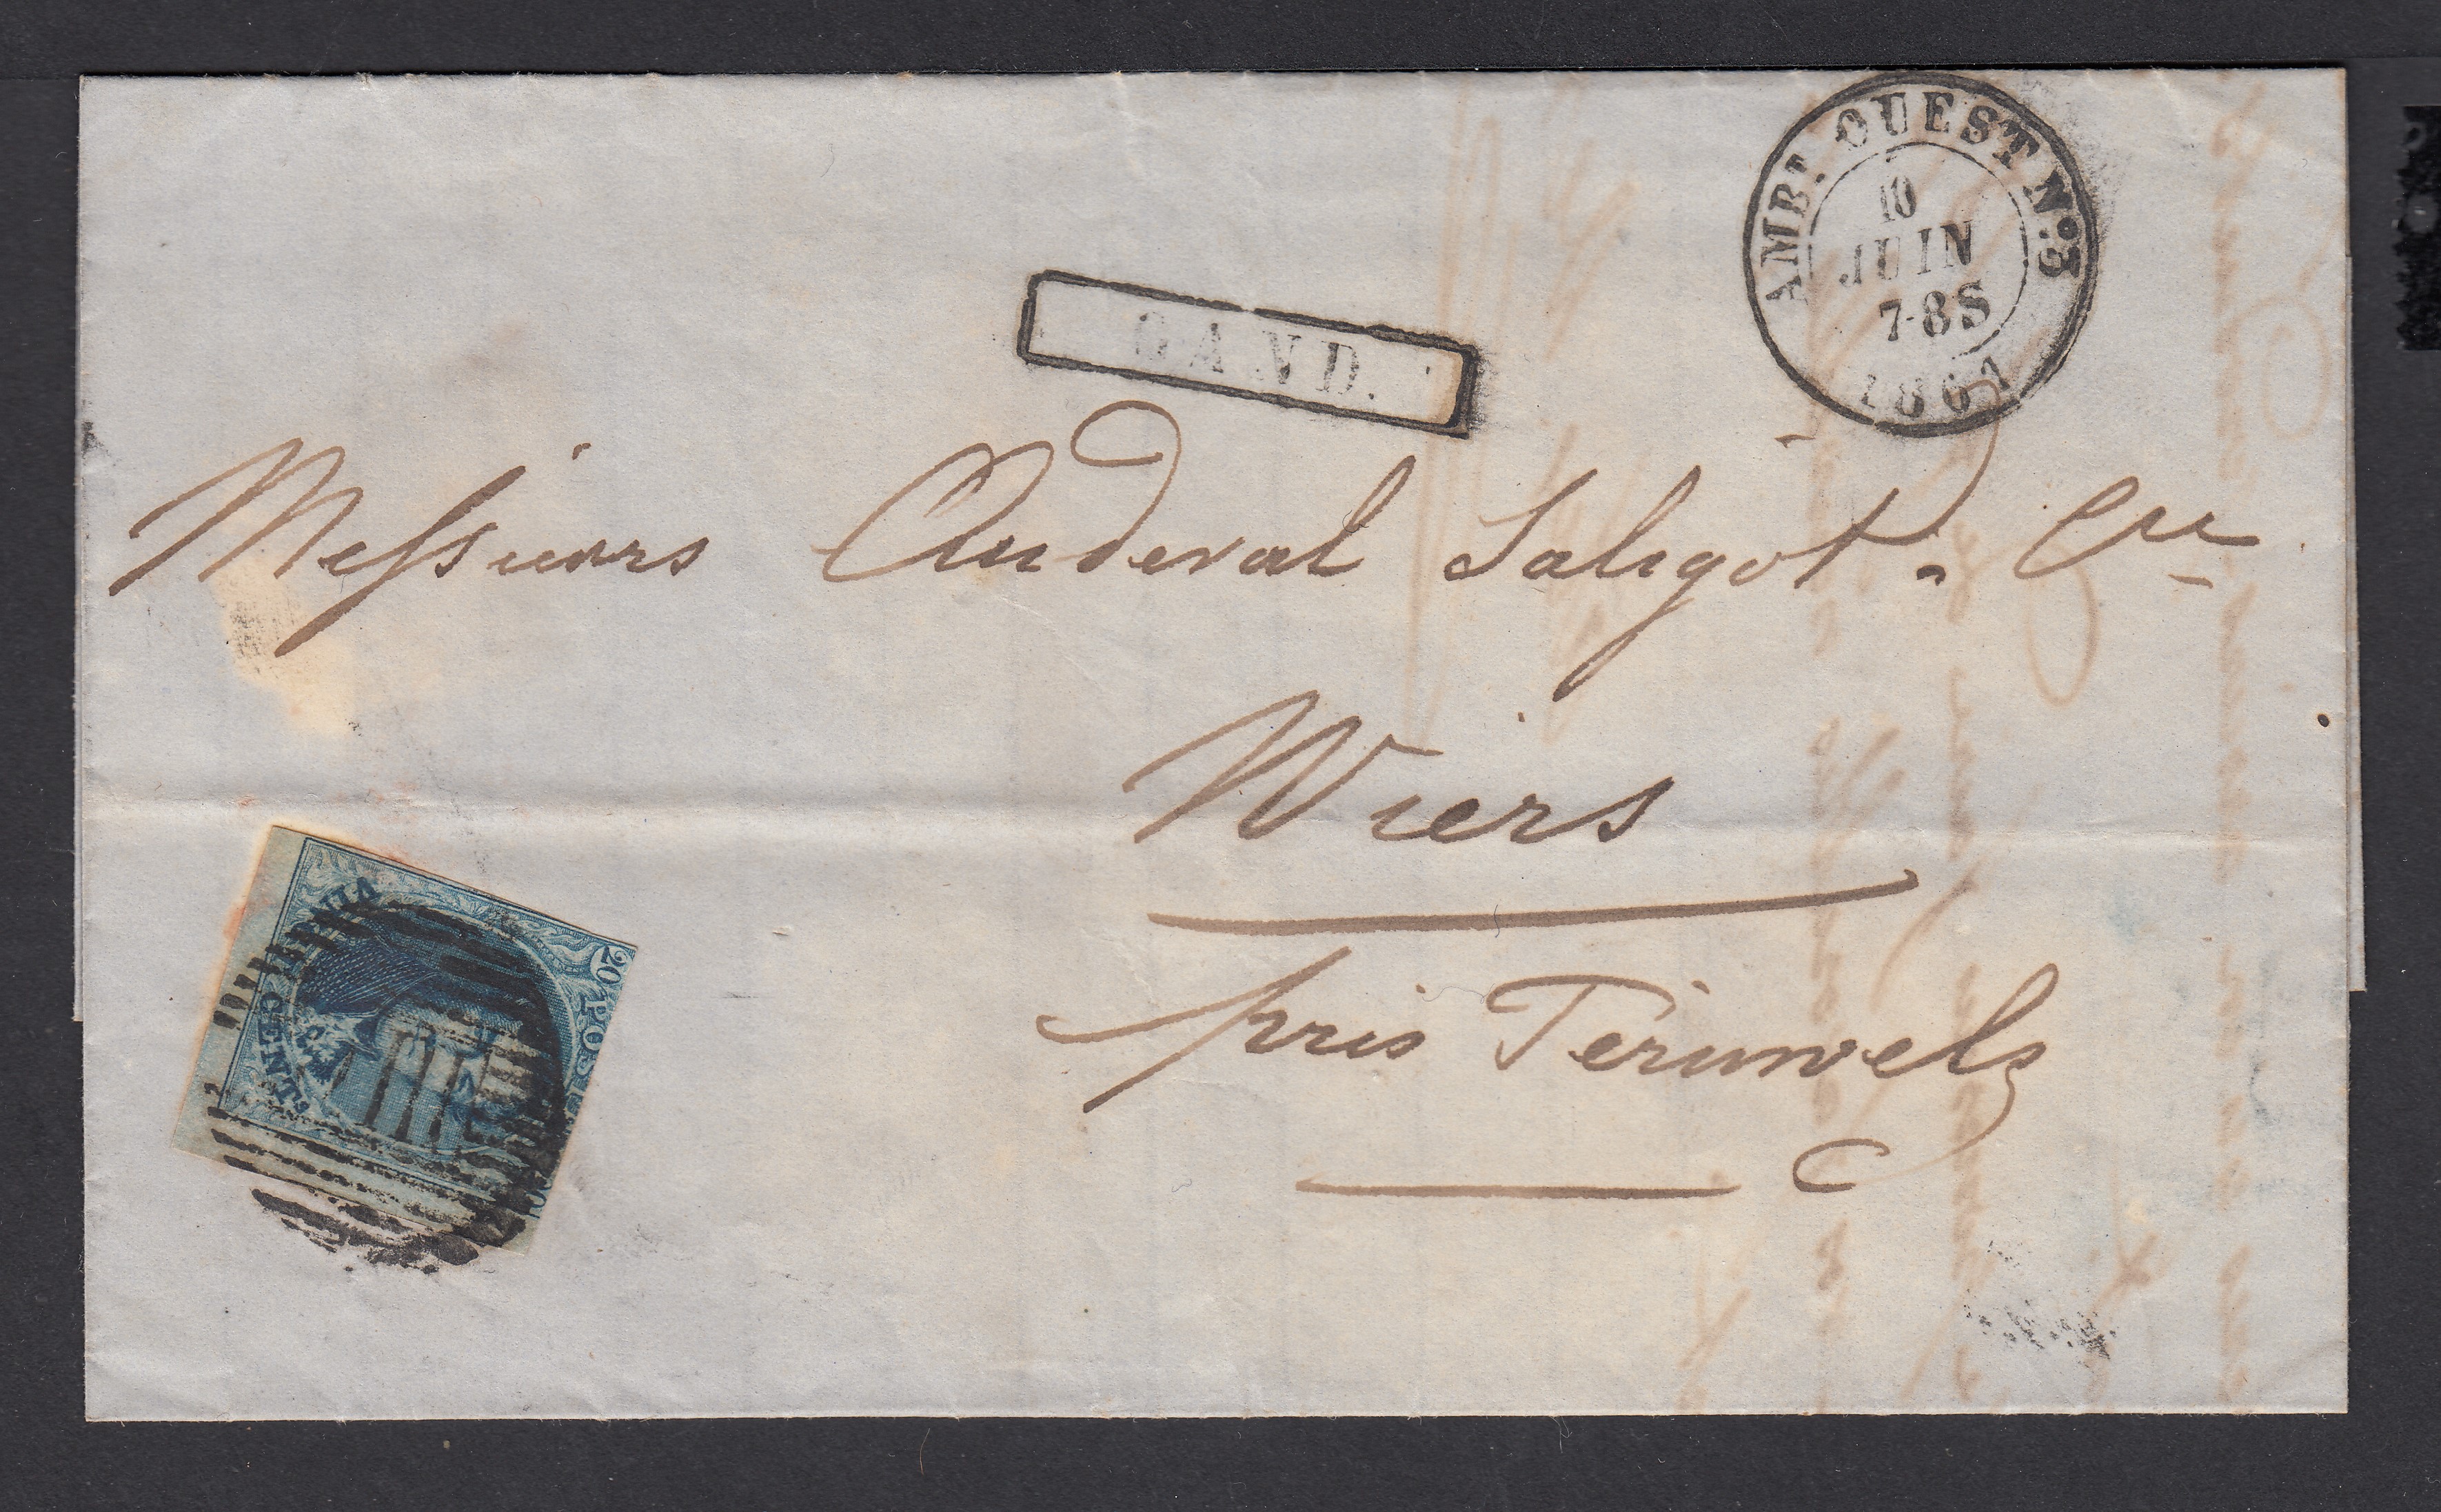 AMBT. OUEST Nº.3
10
JUIN
7-8S
1861
GAND.
Messieurs Auderval Saligot & Cie
Wiers
près Péruwelz
20 POSTES 20
VINGT CENTIMES